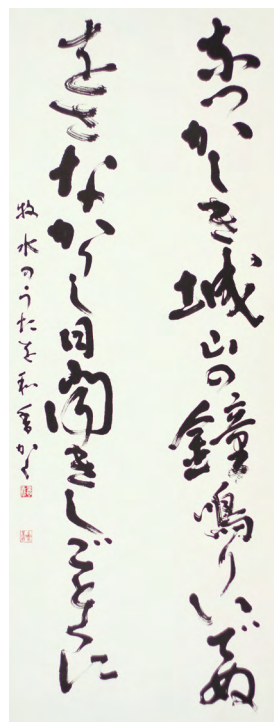 なつかしき城山の鐘鳴りいでぬ
をさなかりし日聞きしごとくに
牧水のうたを和香かく